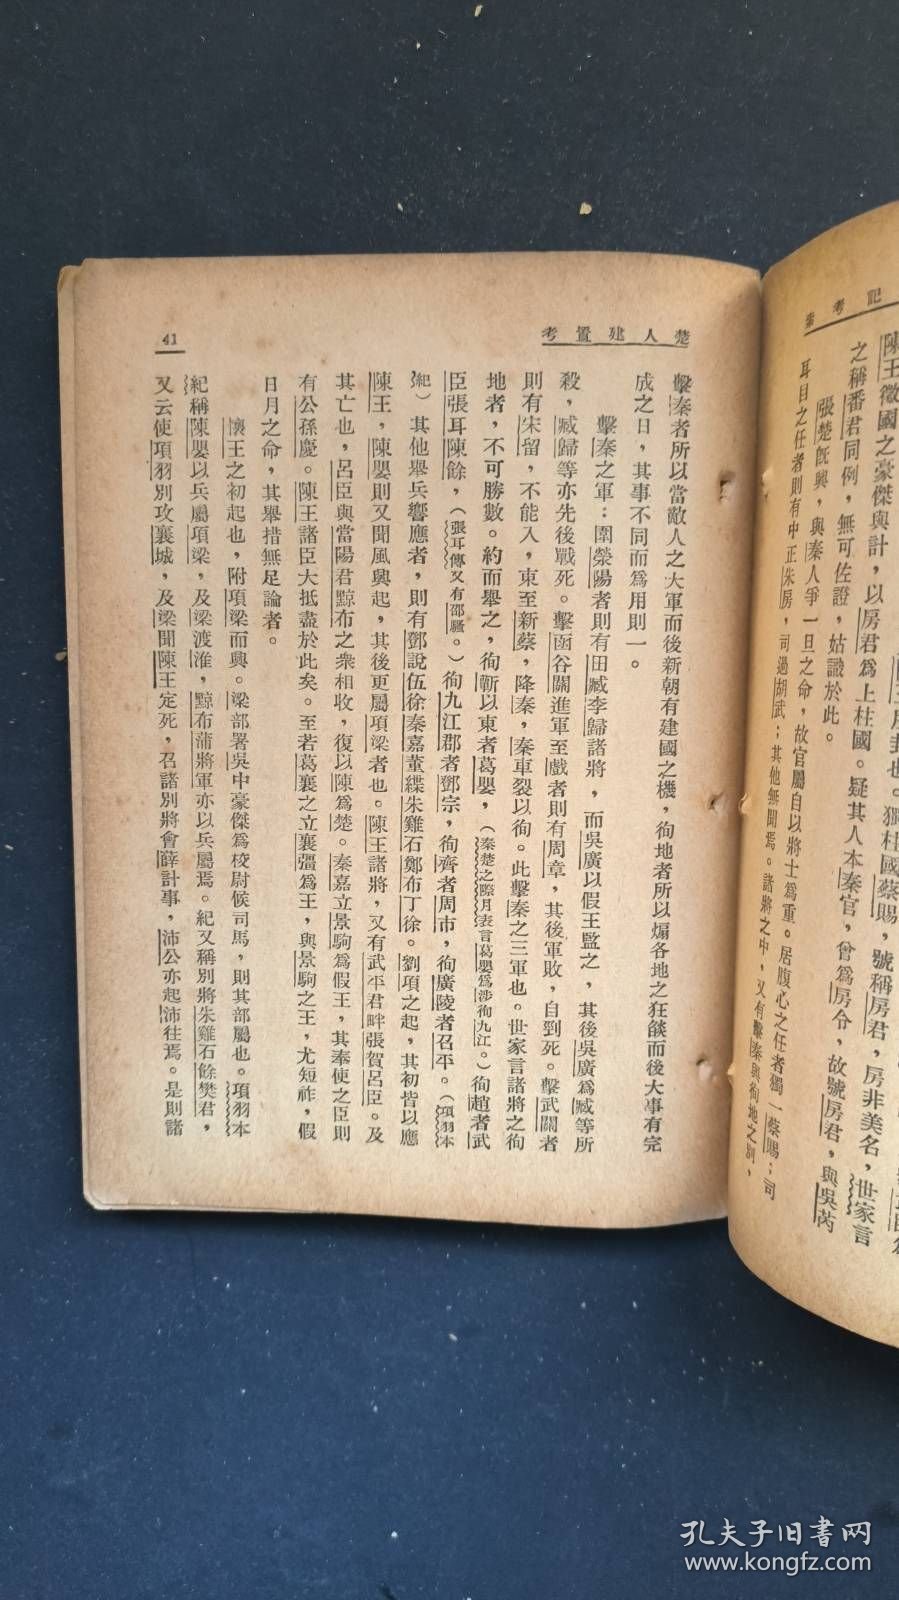 記考索
陳王徵國之豪傑與計，以房君爲上柱國。疑其人本秦官，曾爲房令，故號房君，與吳芮
之稱番君同例，無可佐證，姑識於此。
張楚既興，與秦人爭一旦之命，故官屬自以將士爲重。居腹心之任者獨一蔡賜；司
耳目之任者則有中正朱房，司過胡武；其他無聞焉。諸將之中，又有擊秦與徇地之別，
楚人建置考
41
擊秦者所以當敵人之大軍而後新朝有建國之機，徇地者所以煽各地之狂燄而後大事有完
成之日，其事不同而爲用則一。
擊秦之軍：圍滎陽者則有田臧李歸諸將，而吳廣以假王監之，其後吳廣爲臧等所
殺，臧歸等亦先後戰死。擊函谷關進軍至戲者則有周章，其後軍敗，自剄死。擊武關者
則有宋留，不能入，東至新蔡，降秦，秦車裂以徇。此擊秦之三軍也。世家言諸將之徇
地者，不可勝數。約而舉之，徇蘄以東者葛嬰，（秦楚之際月表言葛嬰爲涉徇九江。）徇趙者武
臣張耳陳餘，（張耳傳又有邵騷。）徇九江郡者鄧宗，徇齊者周市，徇廣陵者召平。（項羽本
紀）其他舉兵響應者，則有鄧說伍徐秦嘉董緤朱雞石鄭布丁徐。劉項之起，其初皆以應
陳王，陳嬰則又聞風興起，其後更屬項梁者也。陳王諸將，又有武平君畔張賀呂臣。及
其亡也，呂臣與當陽君黥布之衆相收，復以陳爲楚。秦嘉立景駒爲假王，其奉使之臣則
有公孫慶。陳王諸臣大抵盡於此矣。至若葛襄之立襄彊爲王，與景駒之王，尤短祚，假
日月之命，其舉措無足論者。
懷王之初起也，附項梁而興。梁部署吳中豪傑爲校尉候司馬，則其部屬也。項羽本
紀稱陳嬰以兵屬項梁，及梁渡淮，黥布蒲將軍亦以兵屬焉。紀又稱別將朱雞石餘樊君，
又云使項羽別攻襄城，及梁聞陳王定死，召諸別將會薛計事，沛公亦起沛往焉。是則諸
孔夫子旧书网
www.kongfz.com